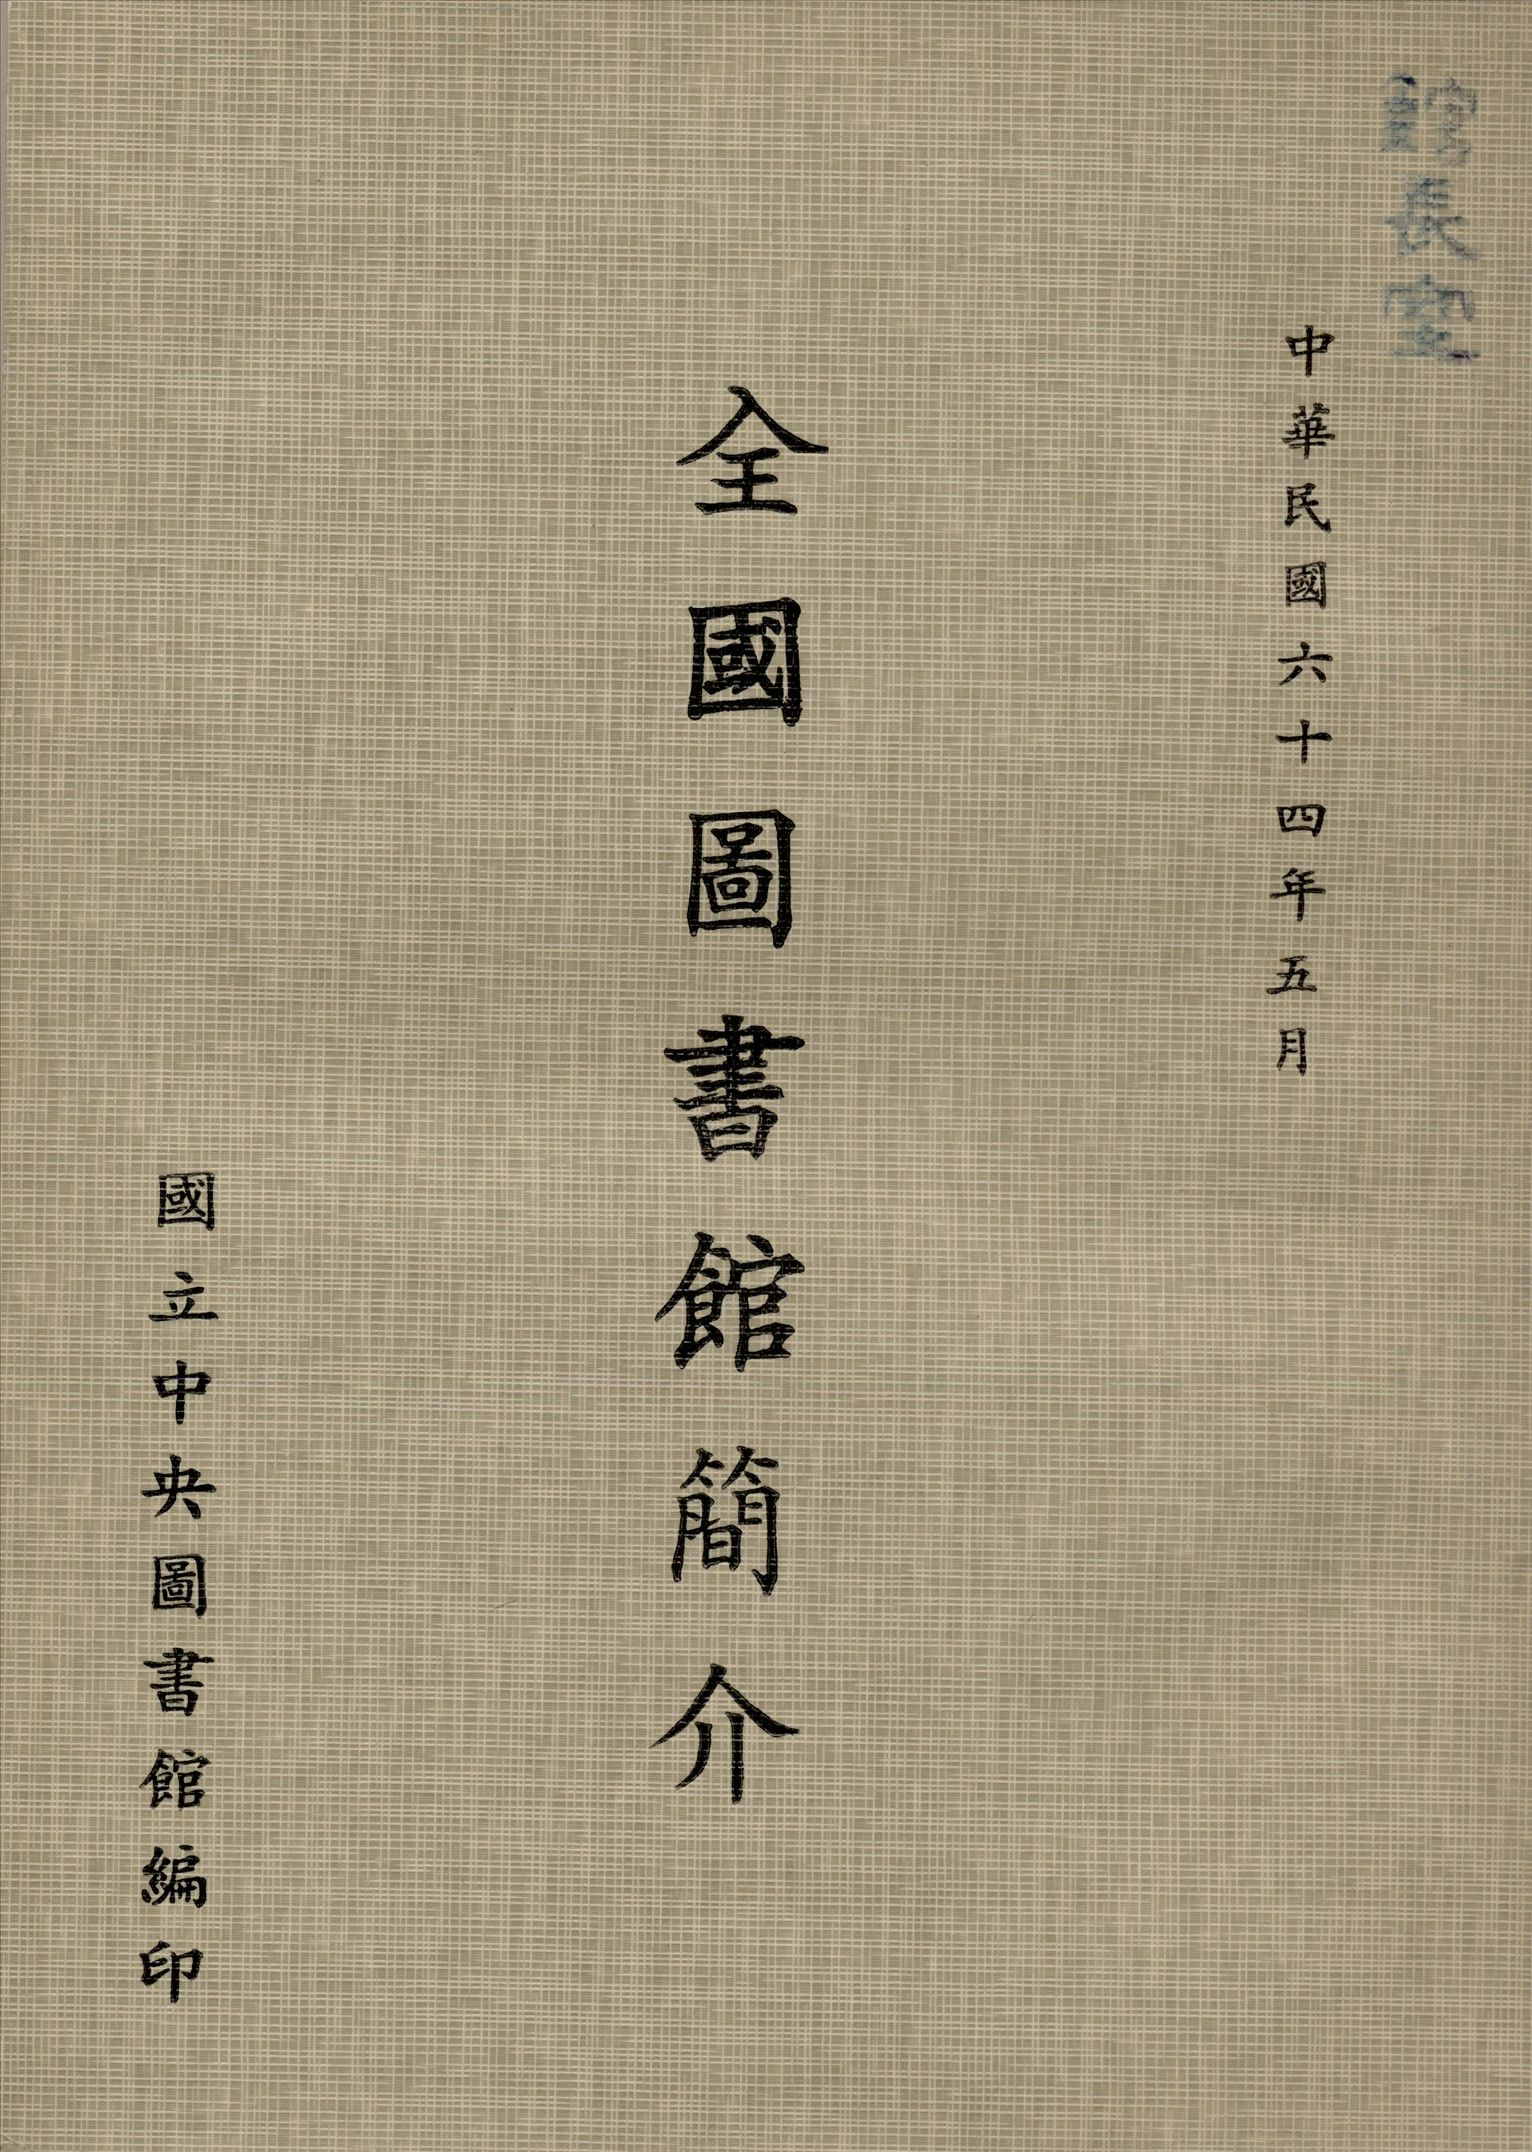 館長室
中華民國六十四年五月
全國圖書館簡介
國立中央圖書館編印